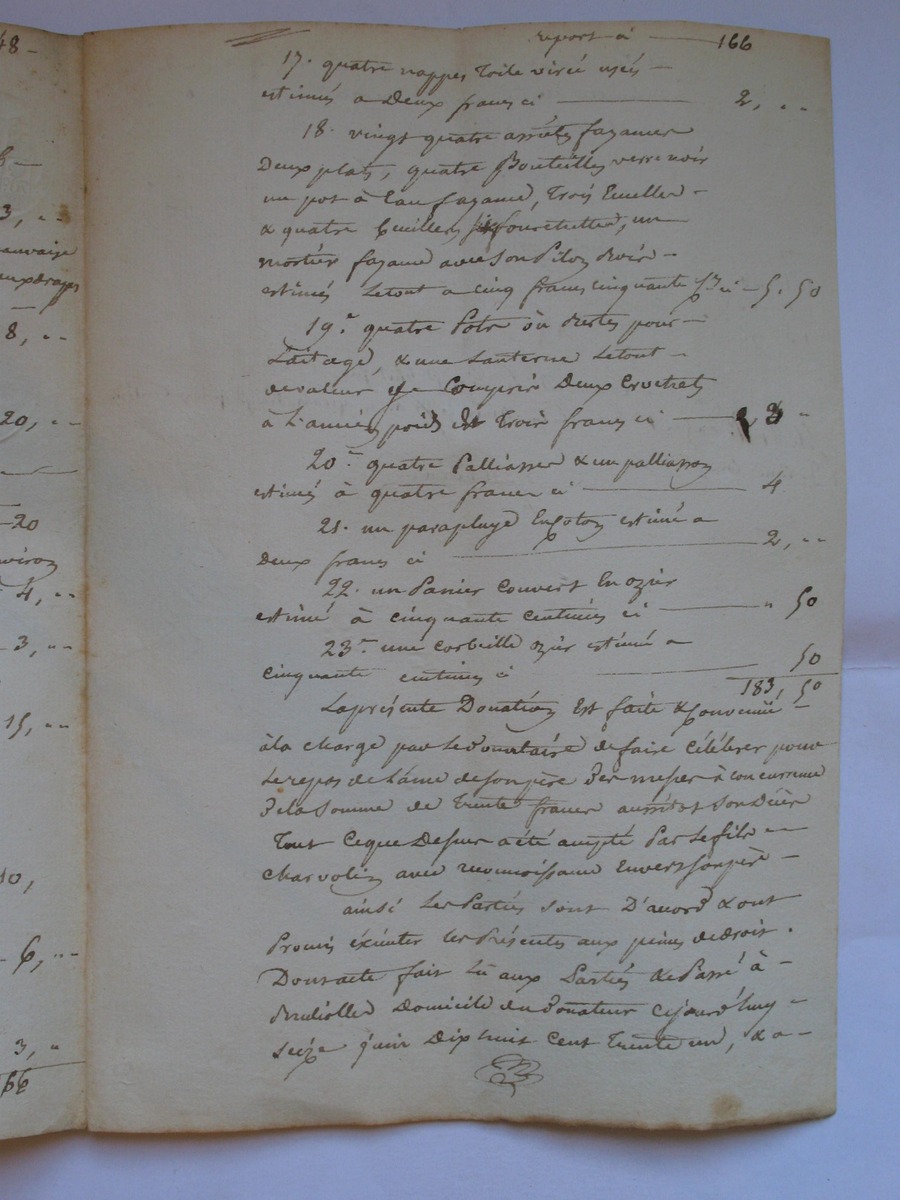 48 -
3, " "
mauvaise
8, " "
20, " "
20
4, " "
3, " "
15, " "
10,
6, " "
3, "
166
report à — 166
17. quatre nappes toile virée usés —
estimés a Deux francs ci — 2, " "
18. vingt quatre assiétes fayance
Deux plats, quatre Bouteilles verre noir
un pot à l'eau fayance, trois Ecuelles -
& quatre Cuilleres fourchettes, un
mortier fayance avec son Pilon —
estimés Letout a cinq francs cinquante ci — 5. 50
19.e quatre Pots ou Bertes pour —
Laitage, & une Lanterne Letout —
de valeur Compris Deux Crochets
à L'ancien poids de Trois francs ci — 3 "
20. quatre Palliasses & un palliasson
estimés à quatre francs ci — 4
21. un parapluye En coton estimé a
Deux francs ci — 2, " "
22. un Panier Couvert En ozier
estimé à cinquante centimes ci — " 50
23. une corbeille ozier estimée a
cinquante centimes ci — 50
183, 50
La présente Donation Est faite & Convenue —
à la charge par le Donataire de faire Célébrer pour
Le repos de L'âme de son père Des messes à concurrence
De la somme de Trente francs aussitôt son Décès
Tout Ceque Dessus a été accepté Par Le fils —
Charvolin avec reconnoissance Envers son père —
ainsi Les Parties sont D'accord & ont
Promis éxécuter les Présentes aux peines de droit.
Dont acte fait Lu aux Parties & Passé à —
Domicile du Donateur Cejourd'huy —
seize juin Dix huit Cent Trente un, & a —